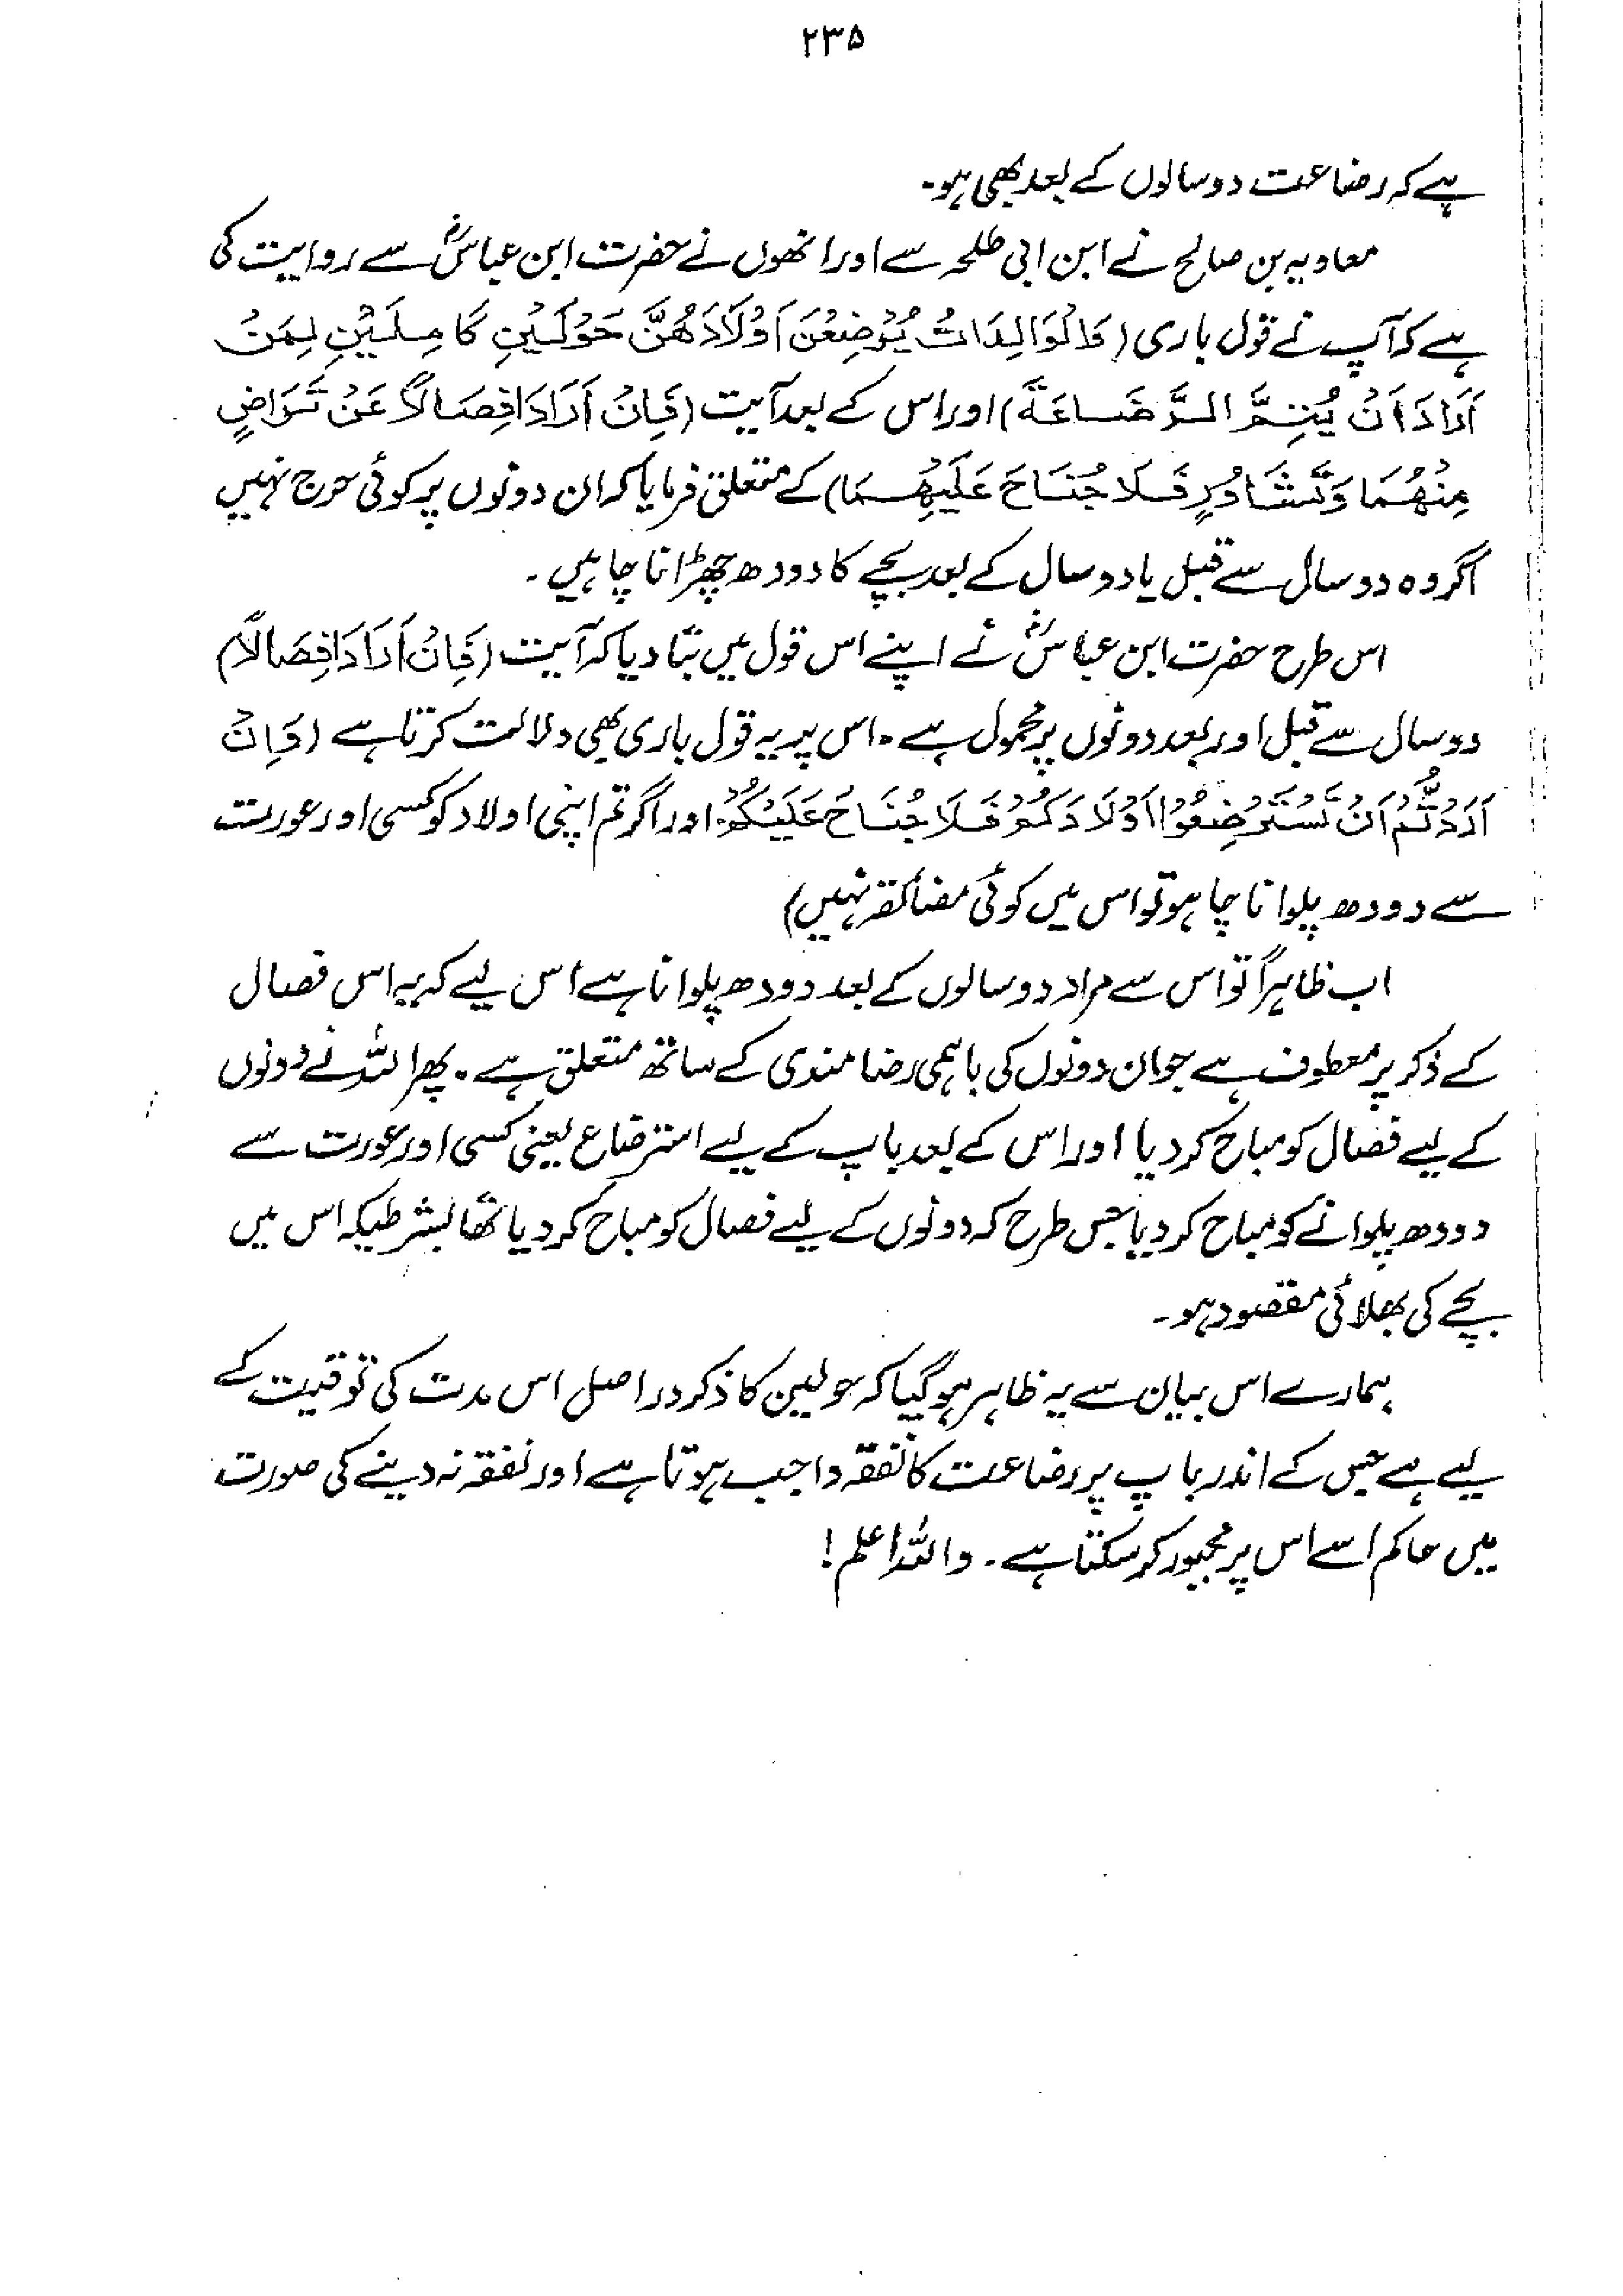 ۲۳۵
ہے کہ رضاعت دو سالوں کے بعد بھی ہو۔
معاویہ بن صالح نے ابن ابی طلحہ سے اور انھوں نے حضرت ابن عباسؓ سے روایت کی
ہے کہ آپ نے قول باری (وَالْوَالِدَاتُ يُرْضِعْنَ اَوْلَادَهُنَّ حَوْلَيْنِ كَامِلَيْنِ لِمَنْ
اَرَادَ اَنْ يُتِمَّ الرَّضَاعَةَ) اور اس کے بعد آیت (فَاِنْ اَرَادَا فِصَالًا عَنْ تَرَاضٍ
مِنْهُمَا وَتَشَاوُرٍ فَلَا جُنَاحَ عَلَيْهِمَا) کے متعلق فرمایا کہ ان دونوں پر کوئی حرج نہیں
اگر وہ دو سال سے قبل یا دو سال کے بعد بچے کا دودھ چھڑانا چاہیں۔
اس طرح حضرت ابن عباسؓ نے اپنے اس قول میں بتا دیا کہ آیت (فَاِنْ اَرَادَا فِصَالًا)
دو سال سے قبل اور بعد دونوں پر محمول ہے۔ اس پر یہ قول باری بھی دلالت کرتا ہے (فَاِنْ
اَرَدْتُّمْ اَنْ تَسْتَرْضِعُوْا اَوْلَادَكُمْ فَلَا جُنَاحَ عَلَيْكُمْ، اور اگر تم اپنی اولاد کو کسی اور عورت
سے دودھ پلوانا چاہو تو اس میں کوئی مضائقہ نہیں)
اب ظاہراً تو اس سے مراد دو سالوں کے بعد دودھ پلوانا ہے اس لیے کہ یہ اس فصال
کے ذکر پر معطوف ہے جو ان دونوں کی باہمی رضامندی کے ساتھ متعلق ہے۔ پھر اللہ نے دونوں
کے لیے فصال کو مباح کر دیا اور اس کے بعد باپ کے لیے استرضاع یعنی کسی اور عورت سے
دودھ پلوانے کو مباح کر دیا جس طرح کہ دونوں کے لیے فصال کو مباح کر دیا تھا بشرطیکہ اس میں
بچے کی بھلائی مقصود ہو۔
ہمارے اس بیان سے یہ ظاہر ہو گیا کہ حولین کا ذکر دراصل اس مدت کی توقیت کے
لیے ہے جس کے اندر باپ پر رضاعت کا نفقہ واجب ہوتا ہے اور نفقہ نہ دینے کی صورت
میں حاکم اسے اس پر مجبور کر سکتا ہے۔ واللہ اعلم!